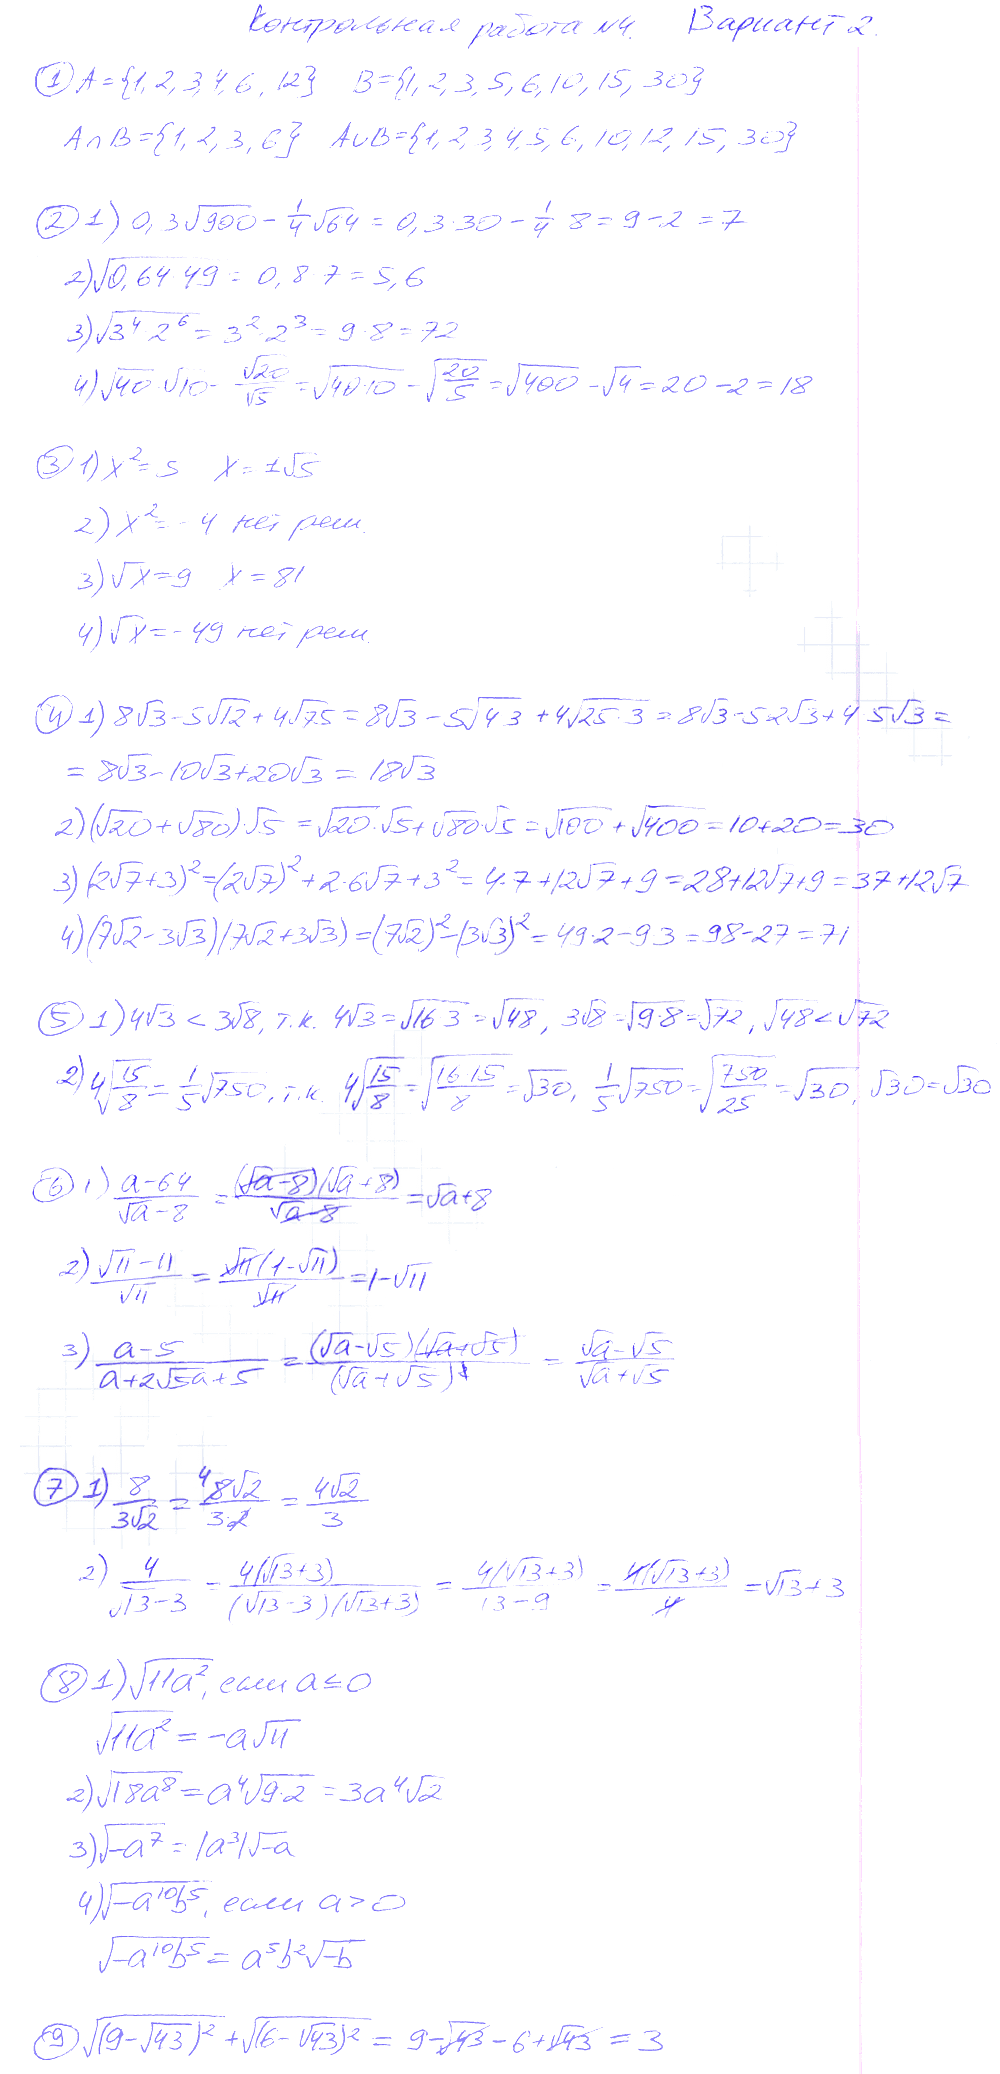 Контрольная работа №4. Вариант 2.
① A={1, 2, 3, 4, 6, 12} B={1, 2, 3, 5, 6, 10, 15, 30}
A∩B={1, 2, 3, 6} A∪B={1, 2, 3, 4, 5, 6, 10, 12, 15, 30}
② 1) 0,3√900 - 1/4 √64 = 0,3·30 - 1/4 · 8 = 9 - 2 = 7
2) √(0,64·49) = 0,8·7 = 5,6
3) √(3⁴·2⁶) = 3²·2³ = 9·8 = 72
4) √40·√10 - √20/√5 = √(40·10) - √(20/5) = √400 - √4 = 20 - 2 = 18
③ 1) x² = 5 x = ±√5
2) x² = -4 нет реш.
3) √x = 9 x = 81
4) √x = -49 нет реш.
④ 1) 8√3 - 5√12 + 4√75 = 8√3 - 5√(4·3) + 4√(25·3) = 8√3 - 5·2√3 + 4·5√3 =
= 8√3 - 10√3 + 20√3 = 18√3
2) (√20 + √80)·√5 = √20·√5 + √80·√5 = √100 + √400 = 10 + 20 = 30
3) (2√7 + 3)² = (2√7)² + 2·6√7 + 3² = 4·7 + 12√7 + 9 = 28 + 12√7 + 9 = 37 + 12√7
4) (7√2 - 3√3)(7√2 + 3√3) = (7√2)² - (3√3)² = 49·2 - 9·3 = 98 - 27 = 71
⑤ 1) 4√3 < 3√8, т.к. 4√3 = √(16·3) = √48, 3√8 = √(9·8) = √72, √48 < √72
2) 4√(15/8) = 1/5 √750, т.к. 4√(15/8) = √(16·15/8) = √30, 1/5 √750 = √(750/25) = √30, √30 = √30
⑥ 1) (a-64)/(√a-8) = (√a-8)(√a+8)/(√a-8) = √a+8
2) (√11-11)/√11 = √11(1-√11)/√11 = 1-√11
3) (a-5)/(a+2√5a+5) = (√a-√5)(√a+√5)/(√a+√5)² = (√a-√5)/(√a+√5)
⑦ 1) 8/(3√2) = 8√2/(3·2) = 4√2/3
2) 4/(√13-3) = 4(√13+3)/((√13-3)(√13+3)) = 4(√13+3)/(13-9) = 4(√13+3)/4 = √13+3
⑧ 1) √(11a²), если a≤0
√(11a²) = -a√11
2) √(18a⁸) = a⁴√(9·2) = 3a⁴√2
3) √(-a⁷) = |a³|√-a
4) √(-a¹⁰b⁵), если a>0
√(-a¹⁰b⁵) = a⁵b²√-b
⑨ √((9-√43)²) + √((6-√43)²) = 9-√43 - 6+√43 = 3